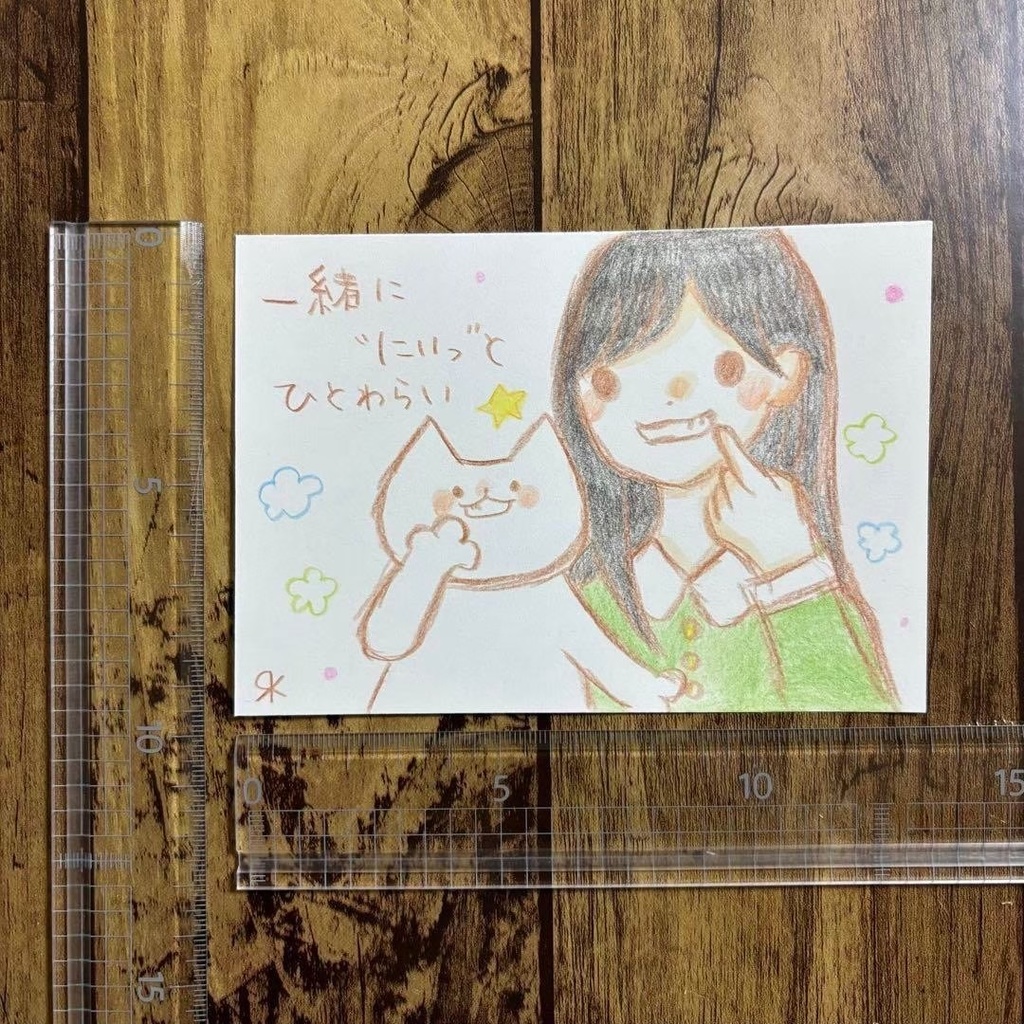 一緒に
“にいっ”と
ひとわらい
0
5
10
15
0
5
10
15